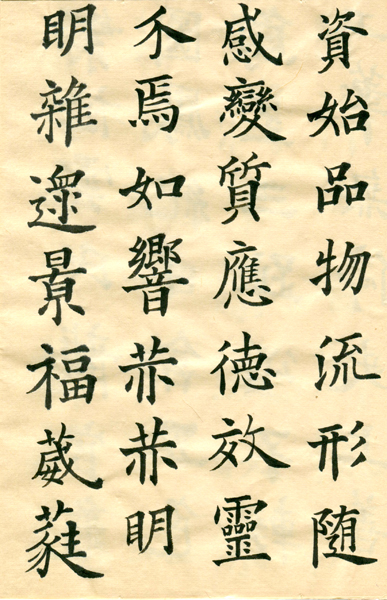 資始品物流形随
感變質應德效靈
介焉如響赤赤明
明雜遝景福葳蕤